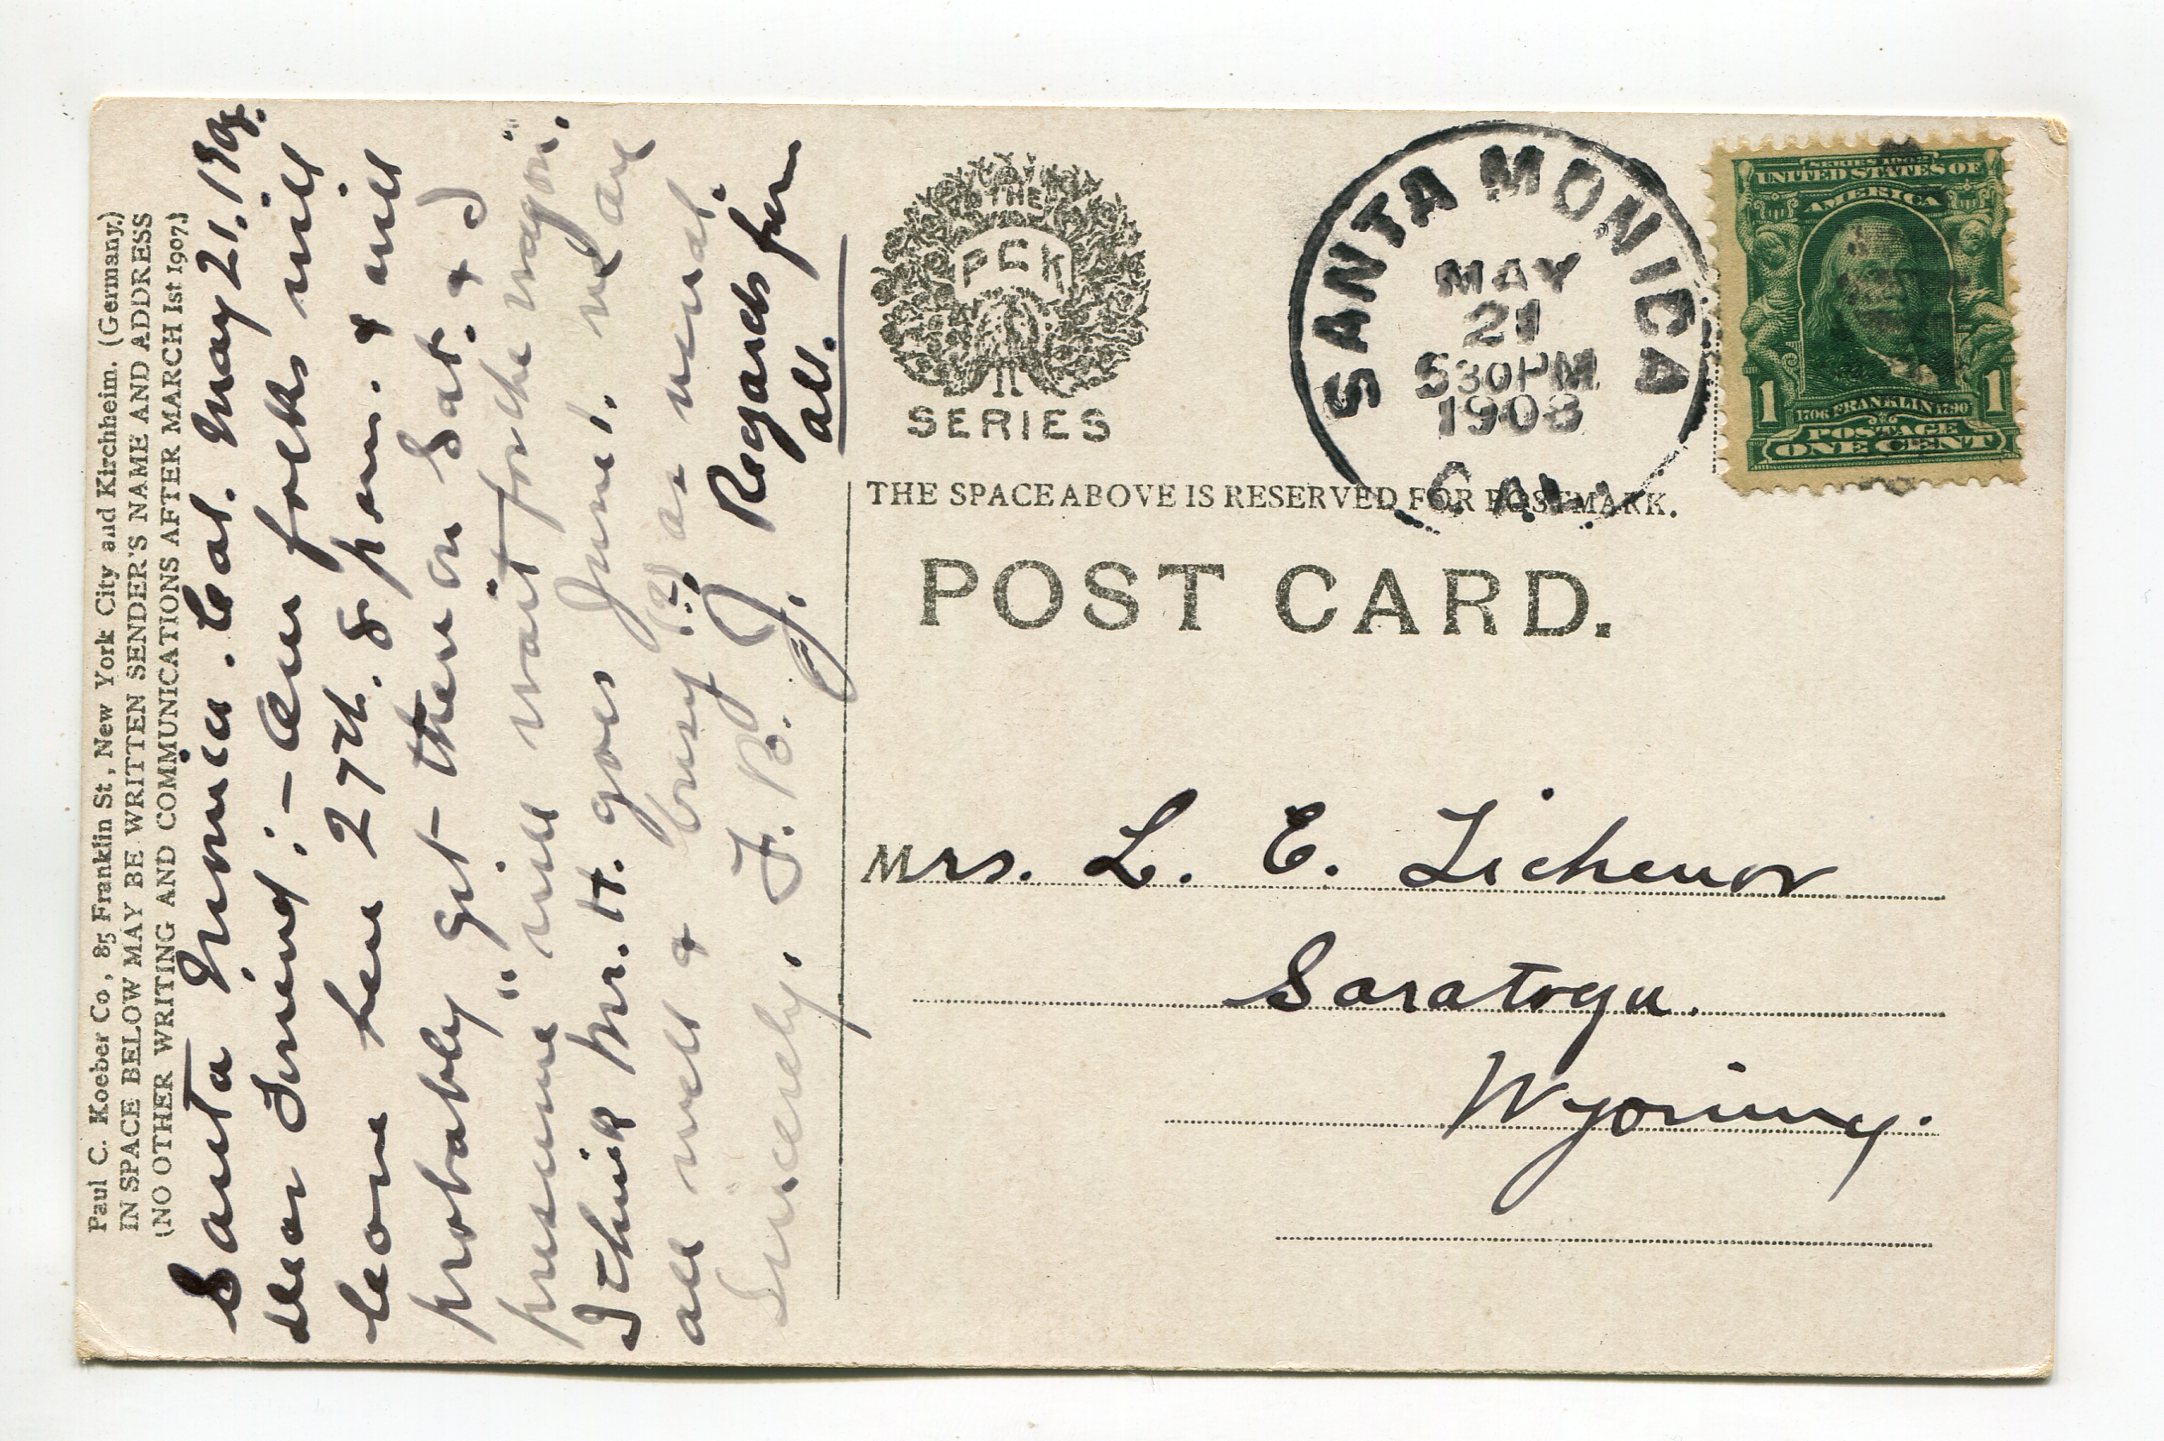 Paul C. Koeber Co, 85 Franklin St, New York City and Kirchheim. (Germany.)
IN SPACE BELOW MAY BE WRITTEN SENDER'S NAME AND ADDRESS
(NO OTHER WRITING AND COMMUNICATIONS AFTER MARCH 1st 1907.)
Santa Monica. Cal. May 21.
Dear Friend;— Our folks will
leave here 27th. 8 p.m. & will
probably get there on Sat. & I
presume "will wait for the wagon".
I think Mr. H. goes June 1. We are
all well & busy (?) as usual.
Sincerely, F. B. J.
Regards from
all.
THE
PCK
SERIES
SANTA MONICA
MAY
21
530PM
1908
CAL.
SERIES 1902
UNITED STATES OF
AMERICA
1 1706 FRANKLIN 1790 1
POSTAGE
ONE CENT
THE SPACE ABOVE IS RESERVED FOR POSTMARK.
POST CARD.
Mrs. L. E. Tichenor
Saratoga.
Wyoming.